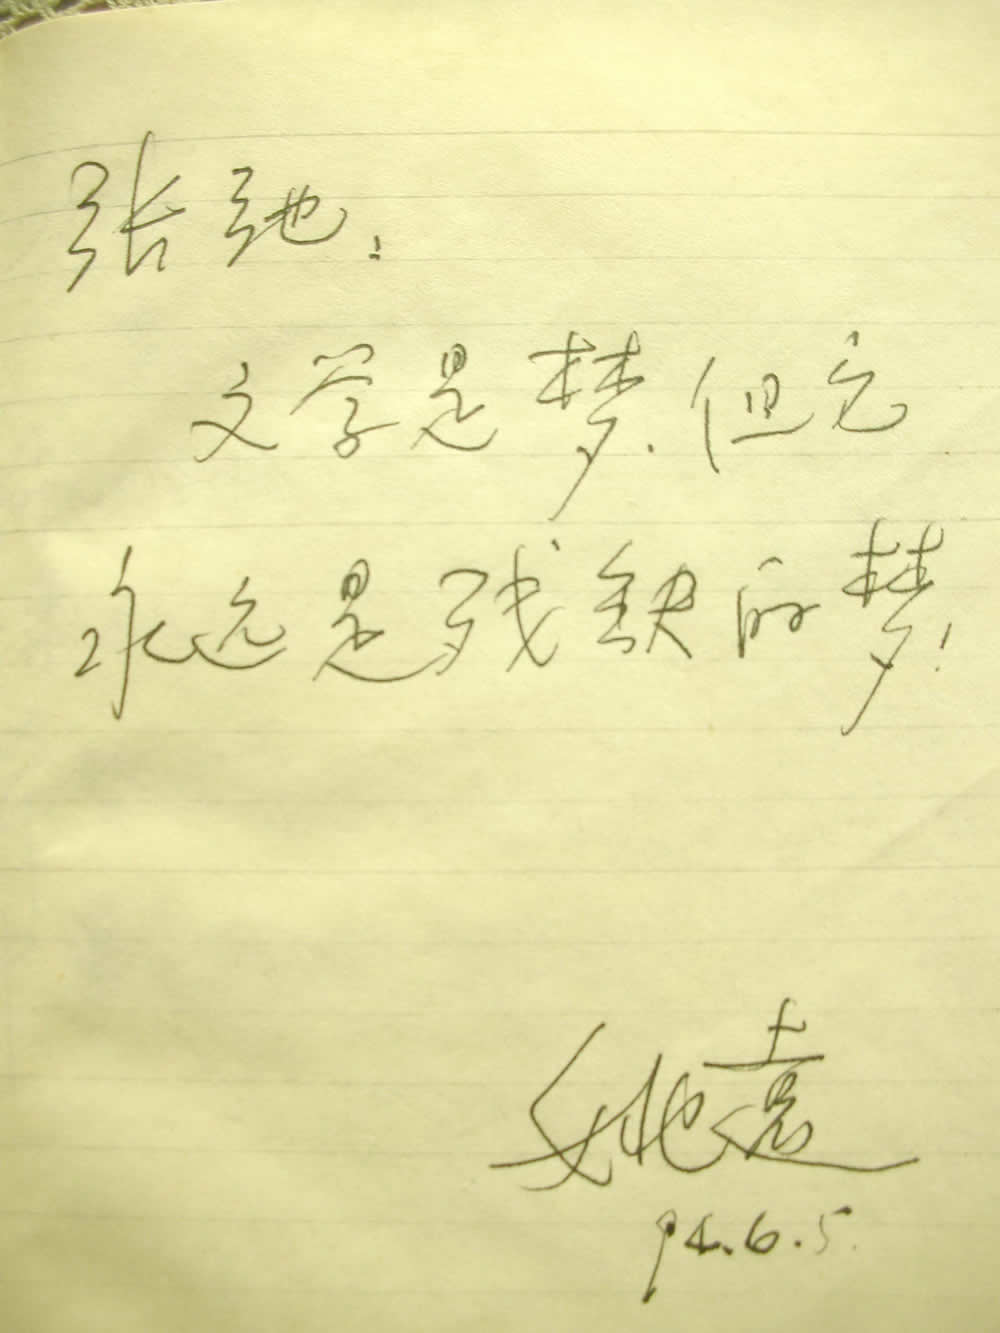 张弛：
文学是梦，但它
永远是残缺的梦！
姚远
94.6.5.